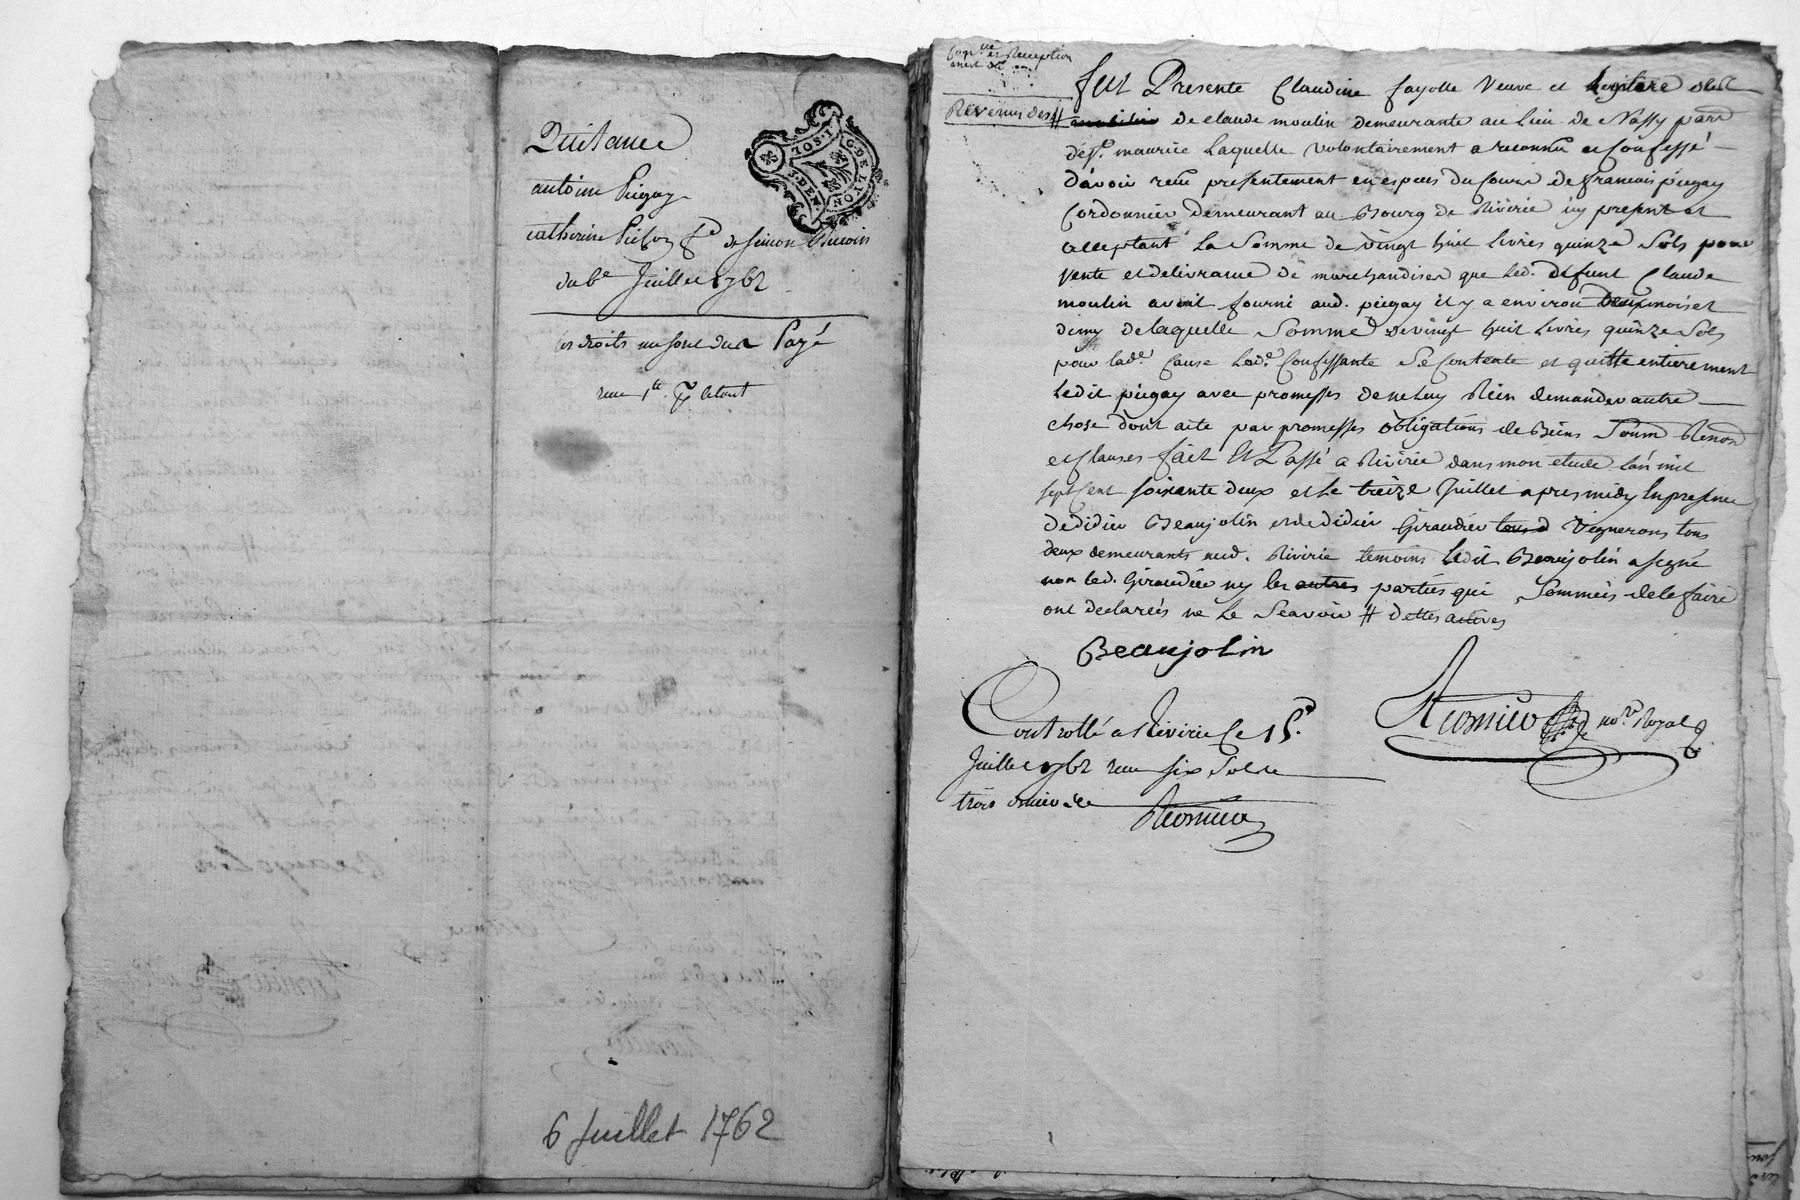 Quitance
antoine Pugay
catherine
de simon
du 6e Juillet 1762
droits
Payé
6 Juillet 1762
G. DE LYON
et Reception
Revenus des #
fut Presente Claudine fayolle Veuve et
de claude moulin demeurante au lieu de Nassy parr
dest. maurice Laquelle volontairement a reconnu et Confessé
d'avoir reçu presentement en especes du Cours de francois pugay
Cordonnier demeurant au Bourg de Riverie icy present et
acceptant La Somme de vingt huit livres quinze Sols pour
vente et delivrance de marchandises que led. défunt Claude
moulin avoit fourni aud. pugay il y a environ deux mois et
demy de laquelle Somme de vingt huit livres quinze Sols
pour lade. Cause lade. Confessante se Contente et quitte entierement
ledit pugay avec promesses de ne luy Rien demander autre
chose dont acte par promesses obligations de Biens
et Clauses fait Et Passé a Riverie dans mon etude l'an mil
sept Cent soixante deux et le treize Juillet apres midy En presence
de didier Beaujolin et de didier Giraudier tous d Vignerons tous
deux demeurants aud. Riverie temoins ledit Beaujolin a signé
non led. Giraudier ny les autres parties qui Sommées de le faire
ont declarées ne le Scavoir # dettes actives
Beaujolin
nore. Royal
Controllé a Riverie le 15e
Juillet 1762 reçu six Sols
trois